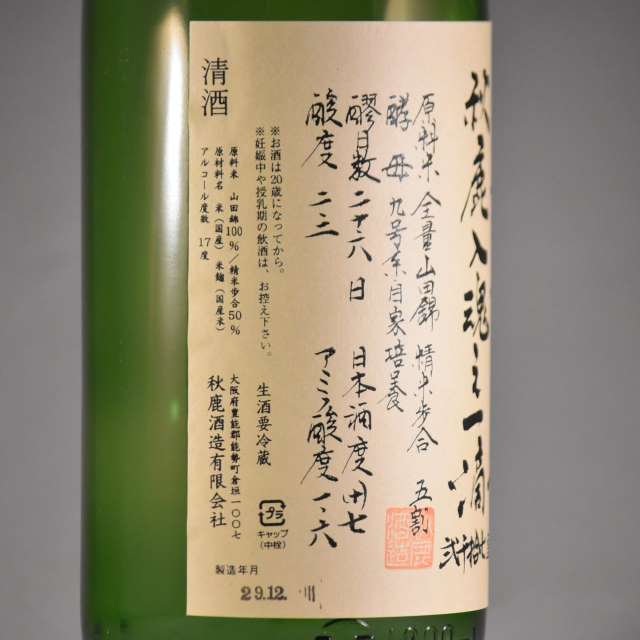 秋鹿入魂之一滴
原料米 全量山田錦 精米歩合 五割
酵母 九号系自家培養
醪日数 二十六日 日本酒度 田七
酸度 二・三 アミノ酸度 一・六
※お酒は20歳になってから。
※妊娠中や授乳期の飲酒は、お控え下さい。
生酒要冷蔵
プラ
キャップ
(中栓)
清酒
原料米 山田錦100%/精米歩合50%
原材料名 米(国産)米麹(国産米)
アルコール度数 17度
大阪府豊能郡能勢町倉垣一〇〇七
秋鹿酒造有限会社
製造年月
29.12.